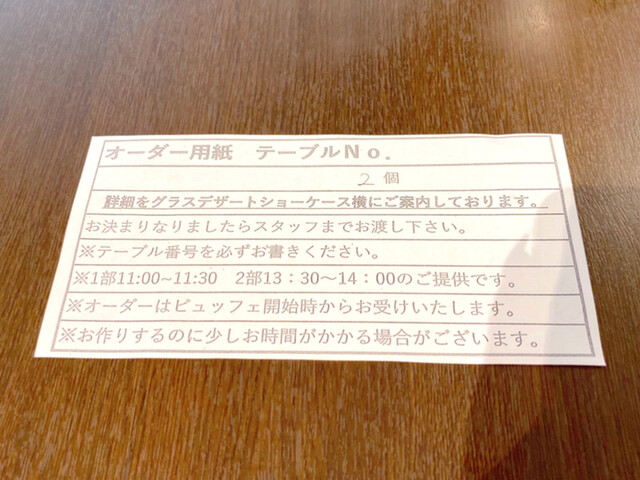 オーダー用紙　テーブルNo.
2個
詳細をグラスデザートショーケース横にご案内しております。
お決まりなりましたらスタッフまでお渡し下さい。
※テーブル番号を必ずお書きください。
※1部11:00~11:30　2部13：30～14：00のご提供です。
※オーダーはビュッフェ開始時からお受けいたします。
※お作りするのに少しお時間がかかる場合がございます。